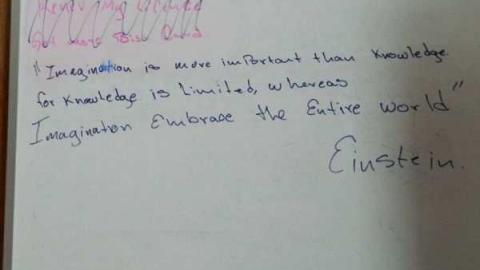 "Imagination is more important than knowledge
for knowledge is limited, whereas
Imagination Embrase the Entire world"
Einstein.